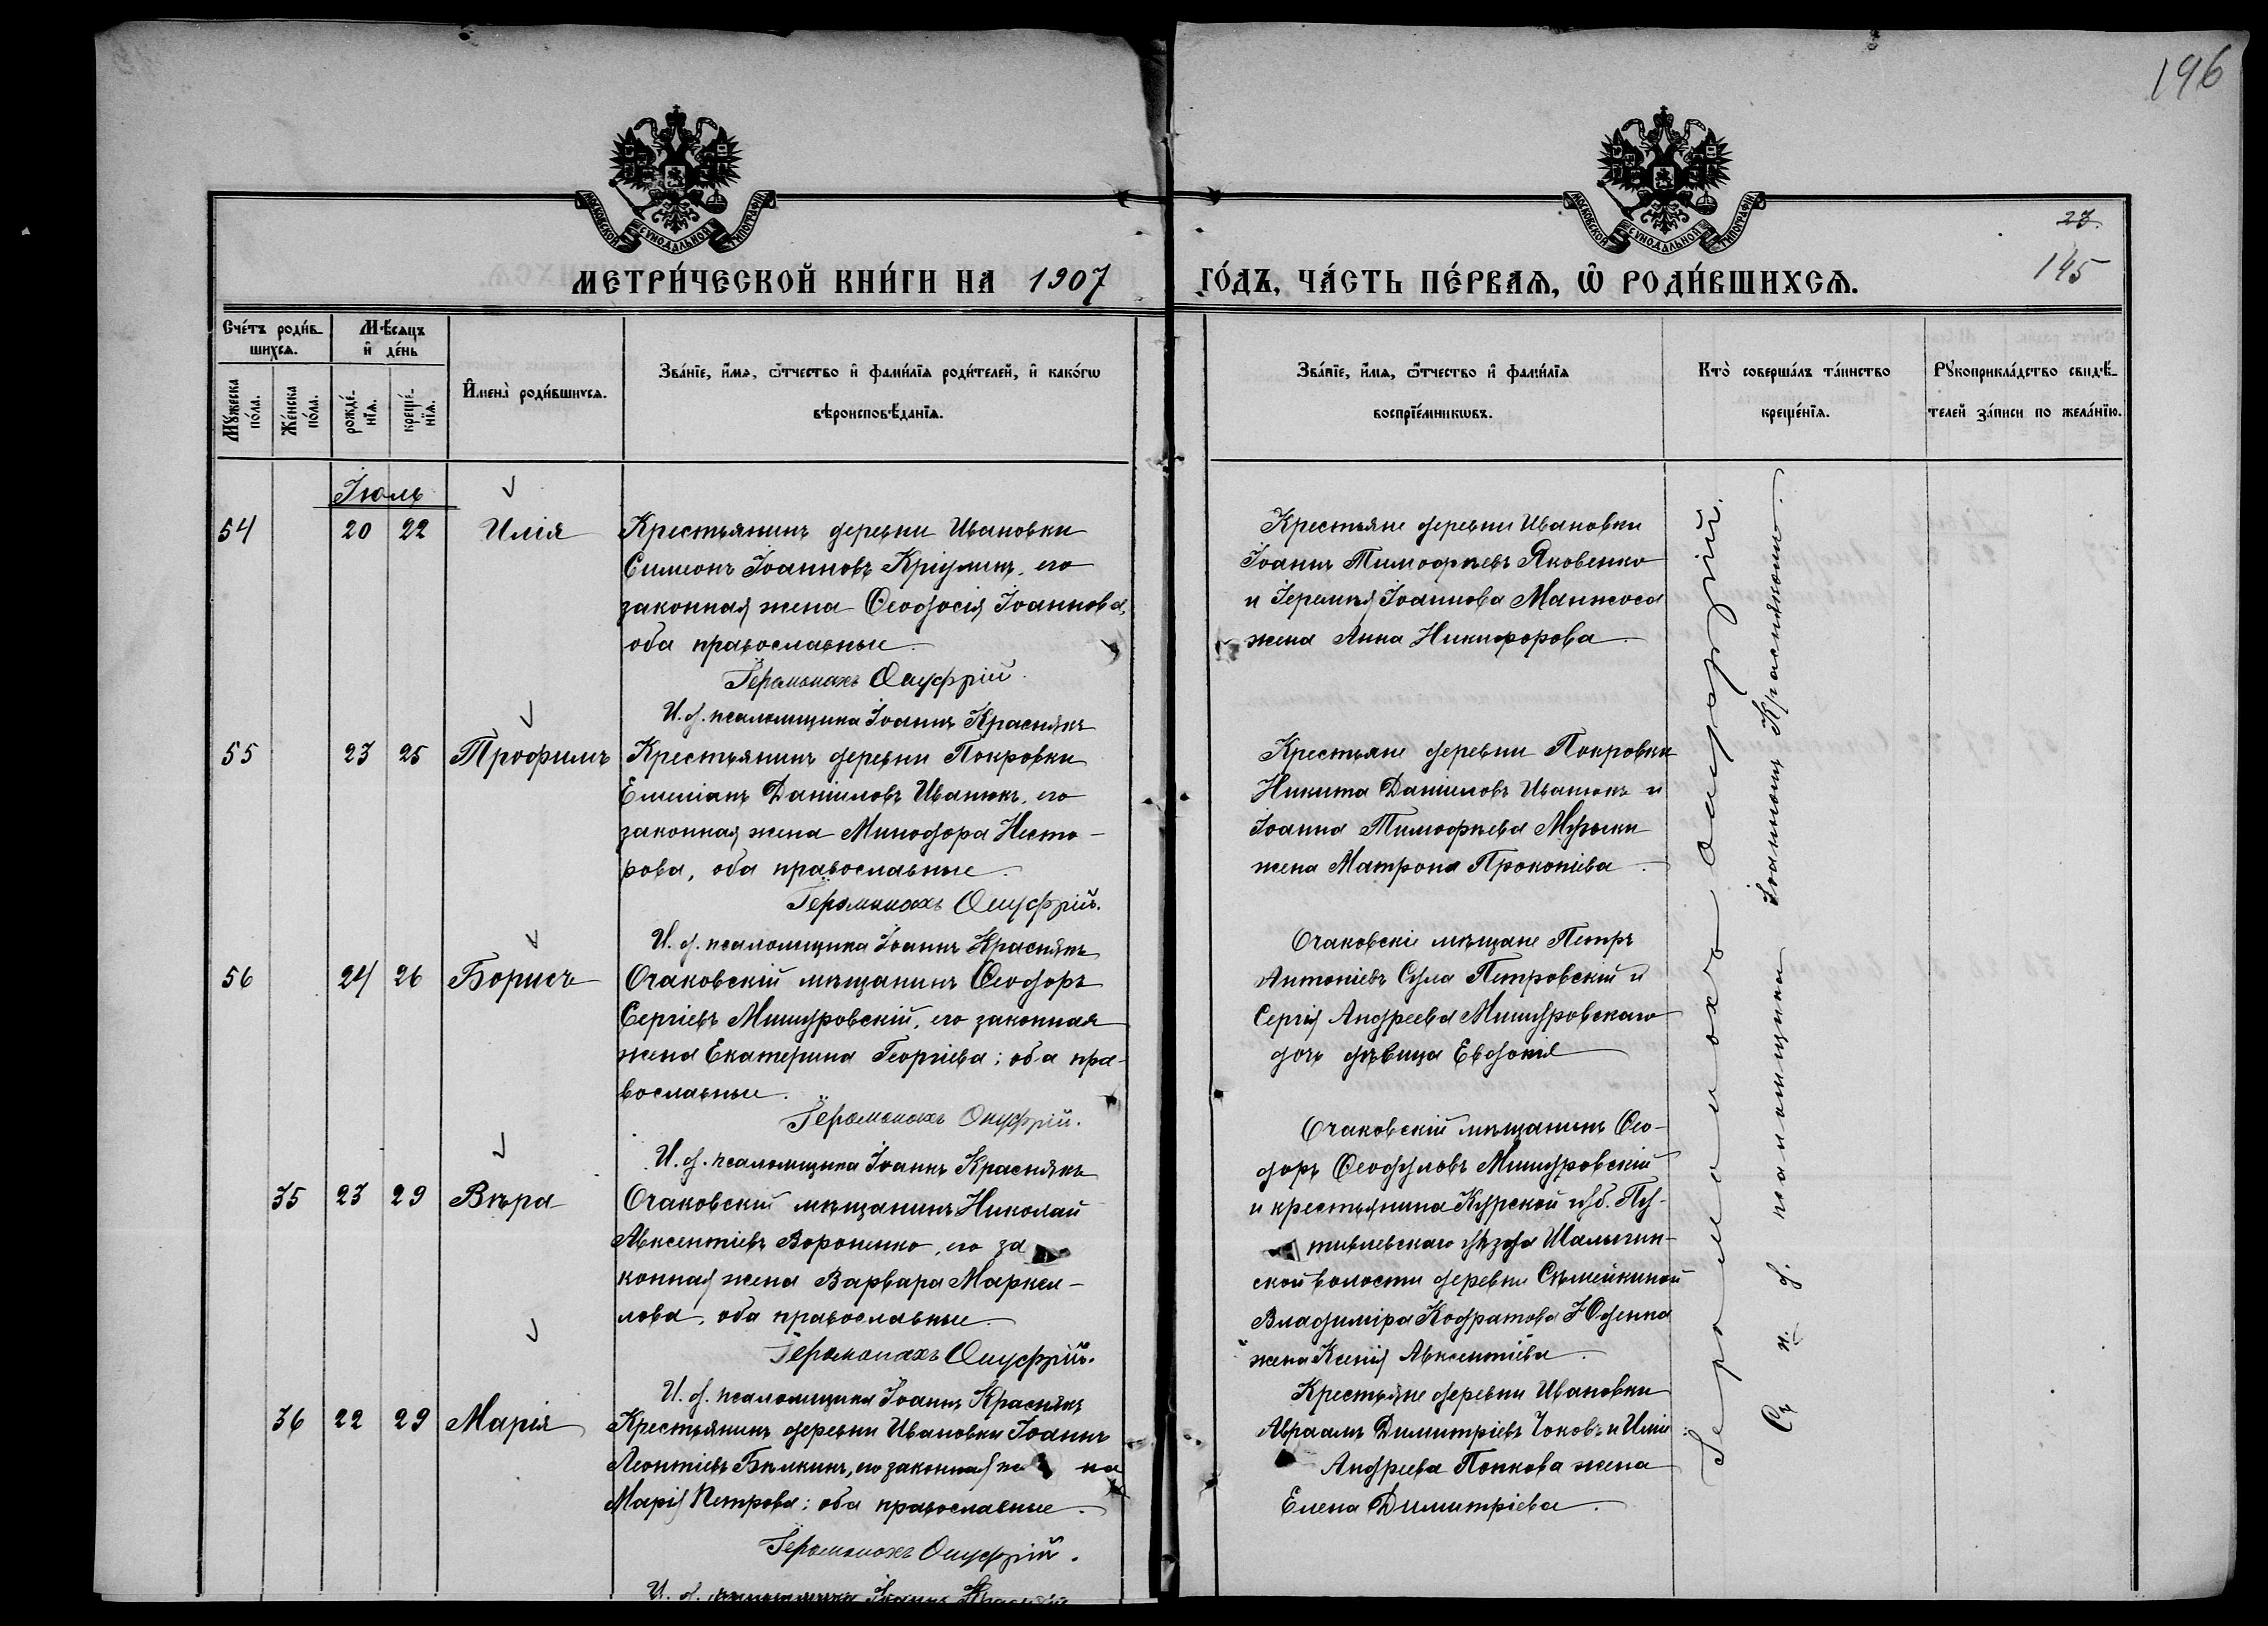 196
МОСКОВСКОЙ СѴНОДАЛЬНОЙ ТИПОГРАФІИ
МОСКОВСКОЙ СѴНОДАЛЬНОЙ ТИПОГРАФІИ
27.
145
МЕТРИ́ЧЕСКОЙ КНИ́ГИ НА 1907
ГО́ДЪ, ЧА́СТЬ ПЕ́РВАѦ, Ѡ҆ РОДИ́ВШИХСѦ.
Сче́тъ роди́в-
шихсѧ.
Мѣ́сѧцъ
и҆ де́нь
Мꙋ́жеска по́ла.
Же́нска по́ла.
рожде́-
нїѧ.
креще́-
нїѧ.
И҆мена̀ роди́вшихсѧ.
Зва́нїе, и҆́мѧ, ѻ҆́тчество и҆ фами́лїѧ роди́телей, и҆ како́гѡ
вѣроисповѣ́данїѧ.
Зва́нїе, и҆́мѧ, ѻ҆́тчество и҆ фами́лїѧ
воспрїе́мникѡвъ.
Кто̀ соверша́лъ та́инство
креще́нїѧ.
Рꙋкоприкла́дство свидѣ́-
телей за́писи по жела́нїю.
Іюль
54 20 22 Илія
Крестьянинъ деревни Ивановки
Симеонъ Іоанновъ Кріулинъ, его
законная жена Ѳеодосія Іоаннова,
оба православные.
Іеромонахъ Онуфрій.
И. д. псаломщика Іоаннъ Краснякъ
Крестьяне деревни Ивановки
Іоаннъ Тимоѳеевъ Яковенко
и Іереміи Іоаннова Манжоса
жена Анна Никифорова.
55 23 25 Трофимъ
Крестьянинъ деревни Покровки
Емеліанъ Даніиловъ Иванюкъ, его
законная жена Минодора Несто-
рова, оба православные.
Іеромонахъ Онуфрій.
И. д. псаломщика Іоаннъ Краснякъ
Крестьяне деревни Покровки
Никита Даніиловъ Иванюкъ и
Іоанна Тимофѣева Музыки
жена Матрона Прокопіева.
56 24 26 Борисъ
Очаковскій мѣщанинъ Ѳеодоръ
Сергіевъ Мишуровскій, его законная
жена Екатерина Георгіева; оба пра-
вославные.
Іеромонахъ Онуфрій.
И. д. псаломщика Іоаннъ Краснякъ
Очаковскіе мѣщане Петръ
Антоніевъ Сула Петровскій и
Сергія Андреева Мишуровскаго
дочь дѣвица Евдокія
35 23 29 Вѣра
Очаковскій мѣщанинъ Николай
Авксентіевъ Вороненко, его за
конная жена Варвара Маркел-
лова, оба православные.
Іеромонахъ Онуфрій.
И. д. псаломщика Іоаннъ Краснякъ
Очаковскій мѣщанинъ Ѳео-
доръ Ѳеодуловъ Мишуровскій
и крестьянина Курской губ. Пу-
тивлевскаго уѣзда Шалыгин-
ской волости деревни Сѣмейкиной
Владиміра Кодратова Юденка
жена Ксенія Авксентіева.
36 22 29 Марія
Крестьянинъ деревни Ивановки Іоаннъ
Леонтіевъ Бѣлкинъ, его законная же на
Марія Петрова; оба православные.
Іеромонахъ Онуфрій.
И. д. псаломщика Іоаннъ Краснякъ
Крестьяне деревни Ивановки
Авраамъ Димитріевъ Чоковъ и Иліи
Андреева Попкова жена
Елена Димитріева.
Іеромонахъ Онуфрій.
Съ и. д. псаломщика Іоанномъ Краснякомъ.